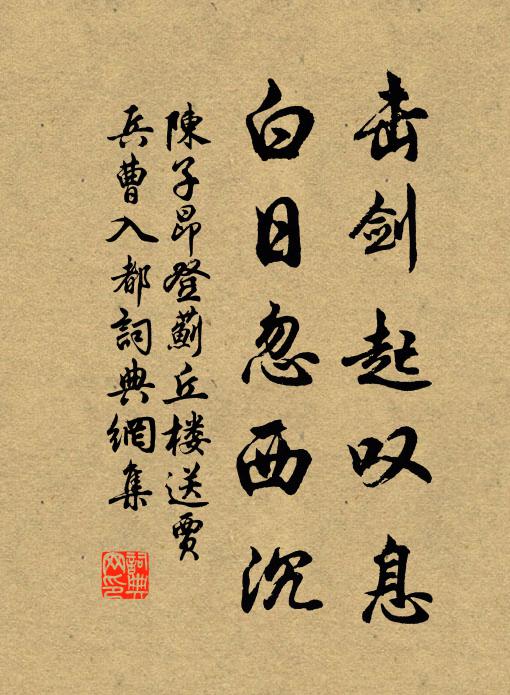 击剑起叹息
白日忽西沉
陳子昂登薊丘楼送贾
兵曹入都詞典網集
詞典
网印